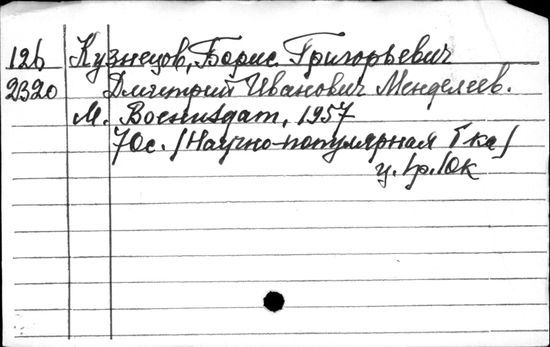 126 Кузнецов, Борис Григорьевич
2320 Дмитрий Иванович Менделеев.
М. Воениздат, 1957
70с. /Научно-популярная б-ка/
ц. 1р. 10к